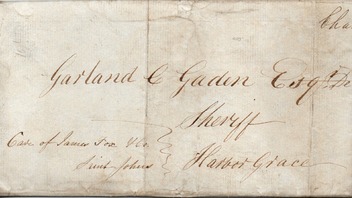 Cha
Garland C Gaden Esqr.
Sheriff
Care of James Fox & Co.
Saint Johns
Harbor Grace